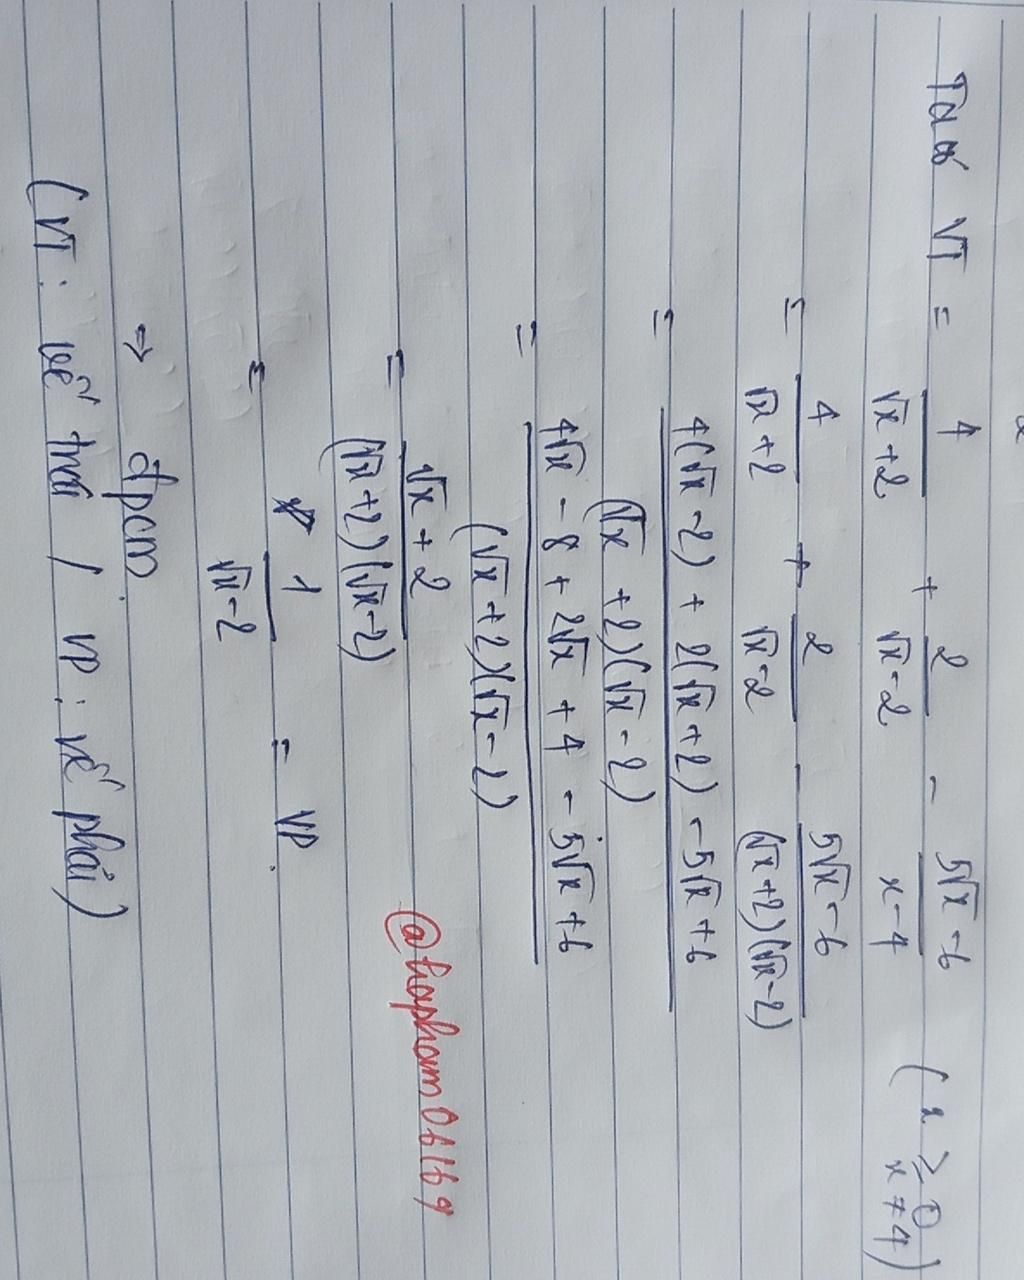 Ta có VT = 4/(√x + 2) + 2/(√x - 2) - (5√x - 6)/(x - 4) (x ≥ 0 x ≠ 4)
= 4/(√x + 2) + 2/(√x - 2) - (5√x - 6)/((√x + 2)(√x - 2))
= (4(√x - 2) + 2(√x + 2) - 5√x + 6)/((√x + 2)(√x - 2))
= (4√x - 8 + 2√x + 4 - 5√x + 6)/((√x + 2)(√x - 2))
= (√x + 2)/((√x + 2)(√x - 2))
= 1/(√x - 2) = VP.
@hapham06169
⇒ đpcm
(VT: vế trái / VP: vế phải)